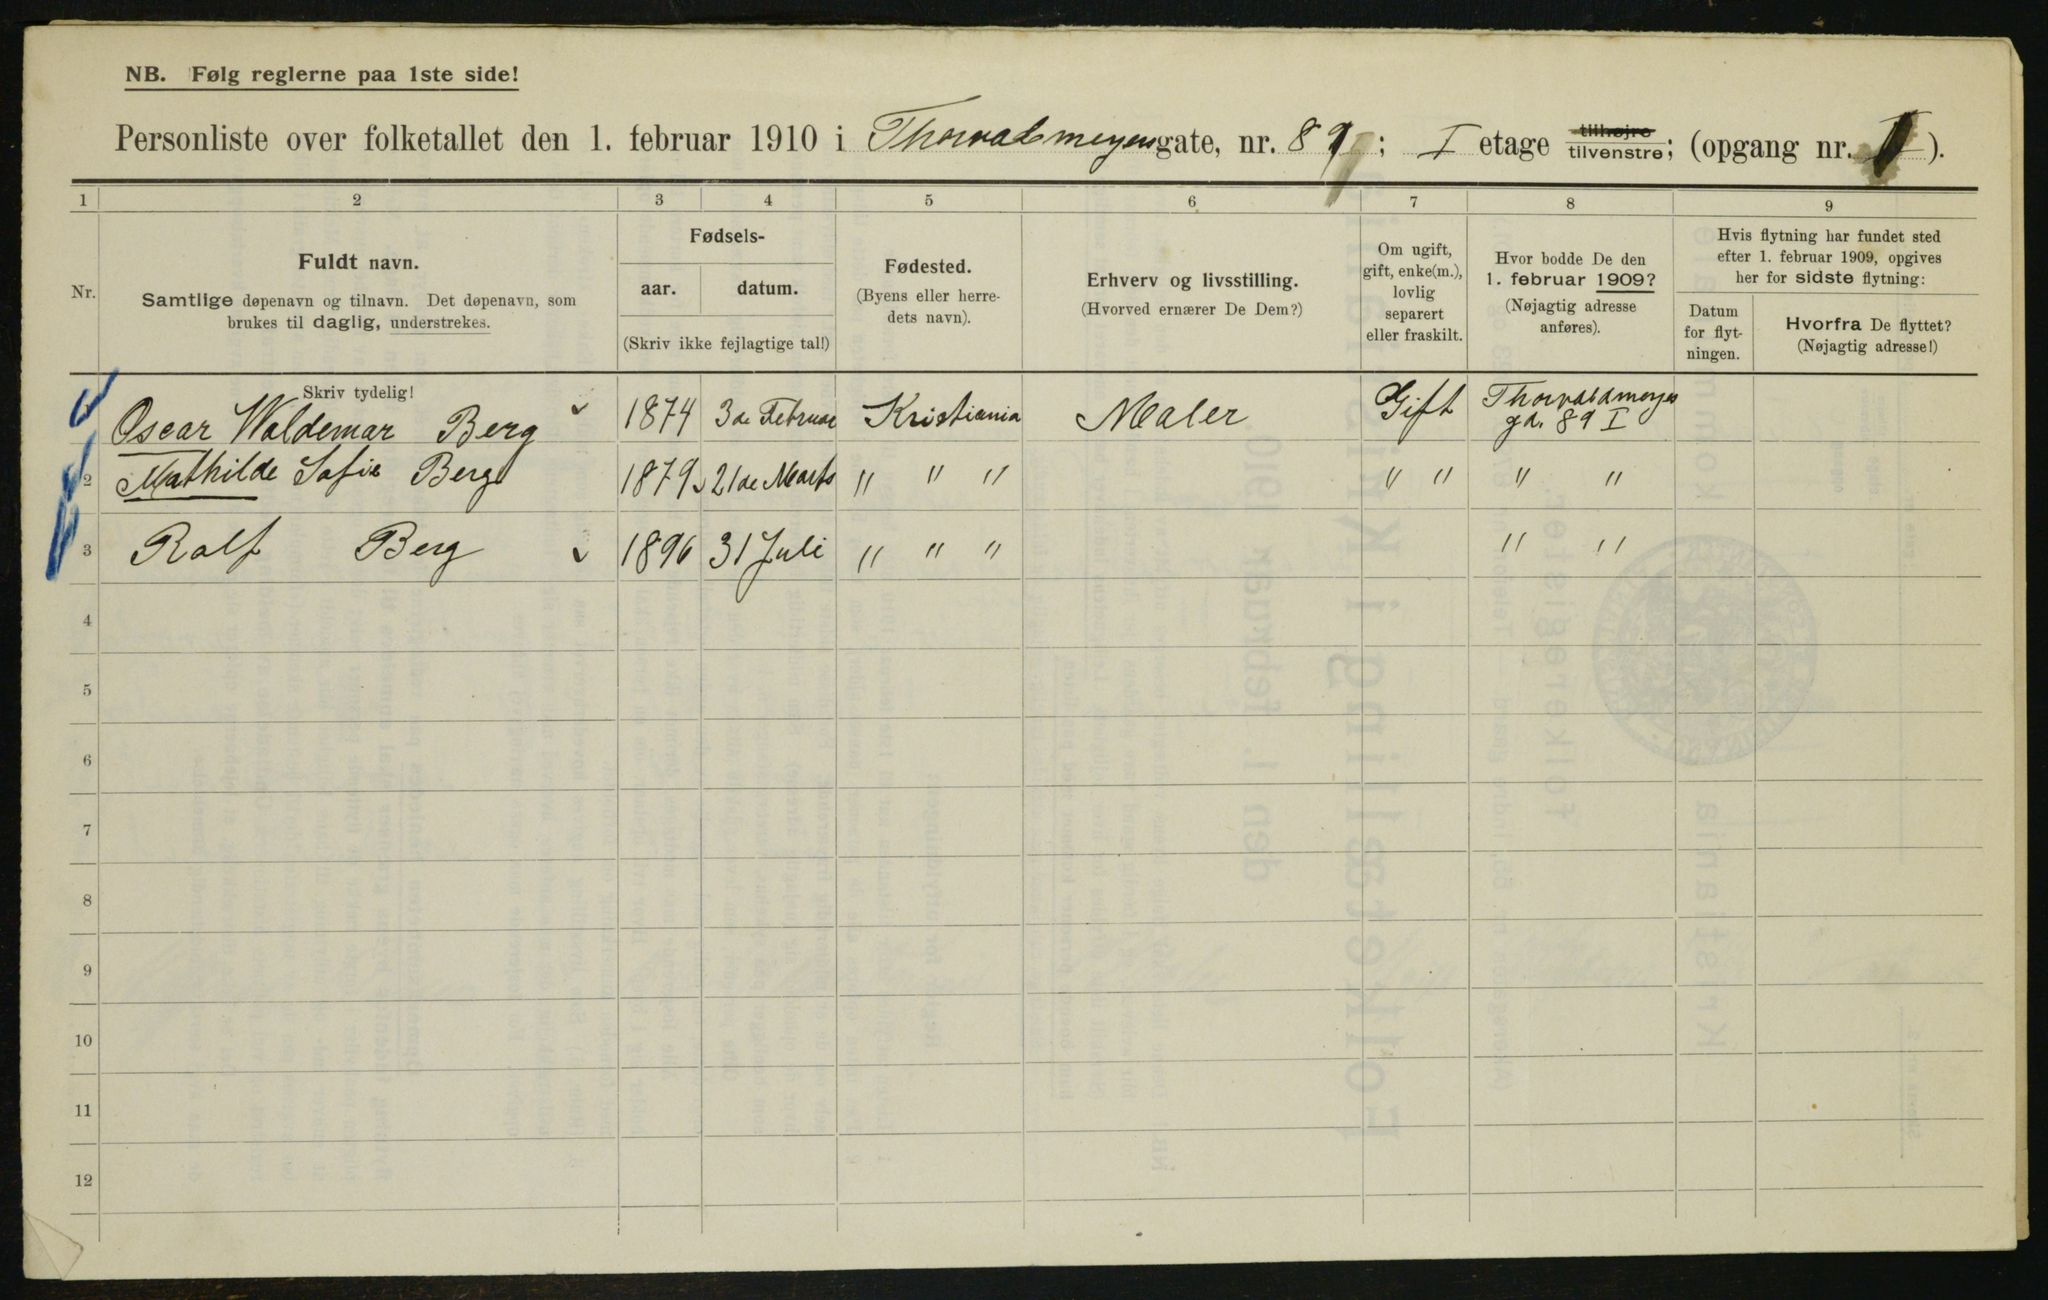 NB. Følg reglerne paa 1ste side!
Personliste over folketallet den 1. februar 1910 i Thorvaldsmeyersgate, nr. 89; I etage tilhøjre tilvenstre; (opgang nr. ).
1 2 3 4 5 6 7 8 9
Nr.
Fuldt navn.
Samtlige døpenavn og tilnavn. Det døpenavn, som
brukes til daglig, understrekes.
Fødsels-
aar. datum.
(Skriv ikke fejlagtige tal!)
Fødested.
(Byens eller herre-
dets navn).
Erhverv og livsstilling.
(Hvorved ernærer De Dem?)
Om ugift,
gift, enke(m.),
lovlig
separert
eller fraskilt.
Hvor bodde De den
1. februar 1909?
(Nøjagtig adresse
anføres).
Hvis flytning har fundet sted
efter 1. februar 1909, opgives
her for sidste flytning:
Datum
for flyt-
ningen.
Hvorfra De flyttet?
(Nøjagtig adresse!)
Skriv tydelig!
Oscar Waldemar Berg 1874 3de Februar Kristiania Maler Gift Thorvaldmeyes
gd. 89 I
2 Mathilde Sofie Berg 1879 21de Marts " " " " " " "
3 Rolf Berg 1896 31 Juli " " " " "
4
5
6
7
8
9
10
11
12